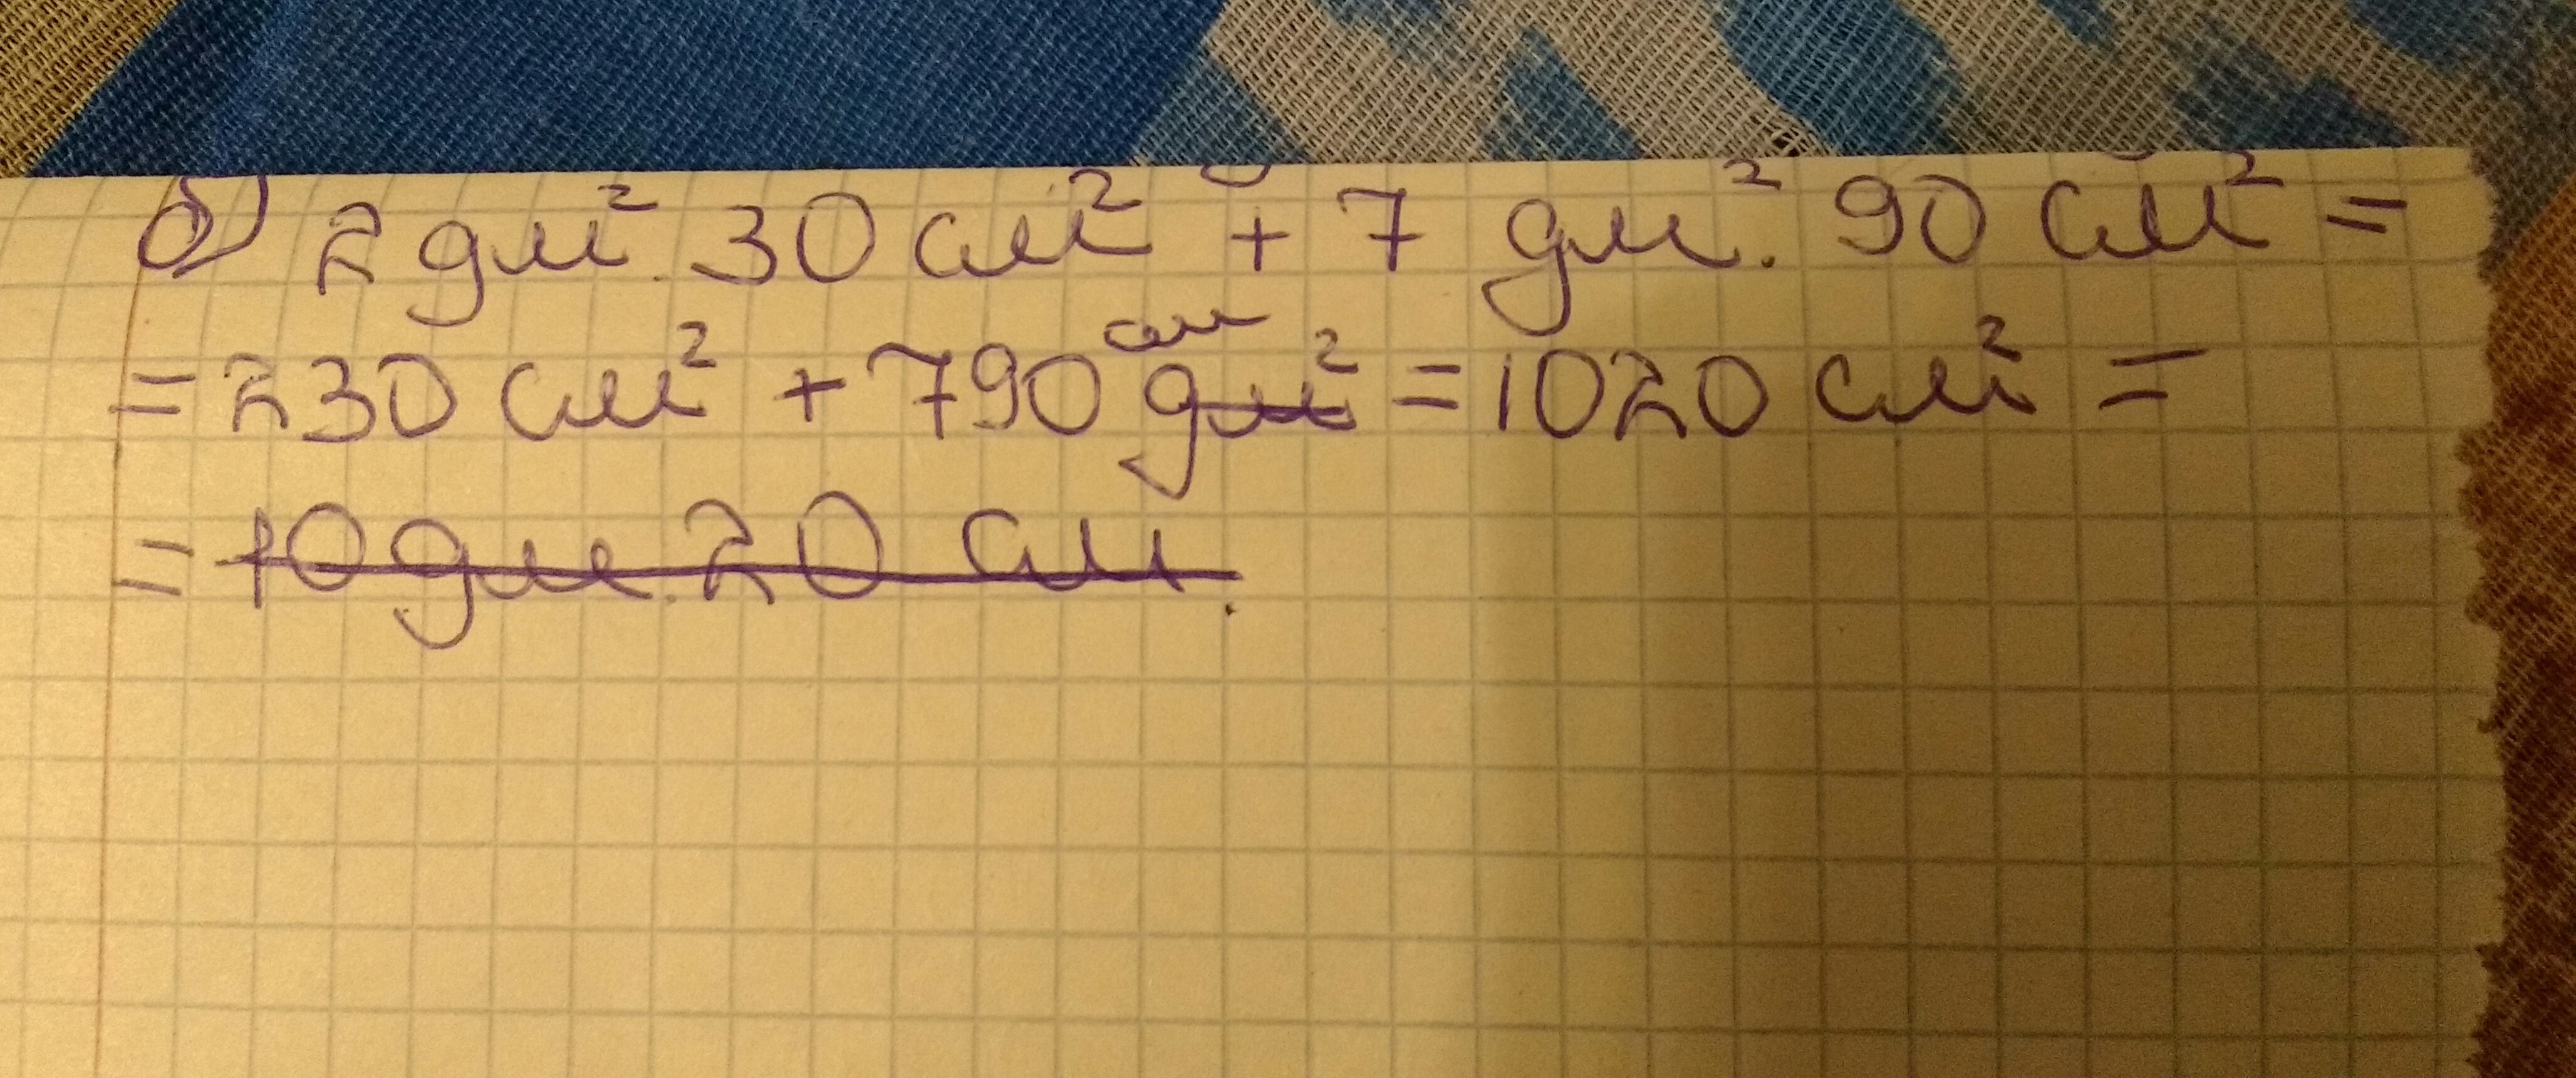 б) 2 дм². 30 см² + 7 дм². 90 см² =
= 230 см² + 790 см дм² = 1020 см² =
= 10 дм. 20 см.